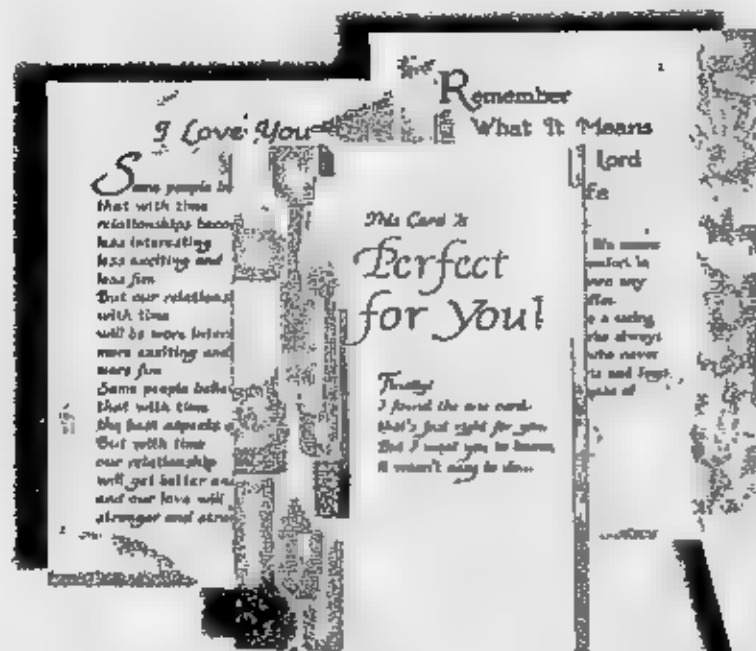 I Love You
Some people be
that with time
relationships beco
less interesting
less exciting and
less fun
But our relations
with time
will be more inter
more exciting and
more fun
Some people belie
that with time
the best aspects o
But with time
our relationship
will get better and
and our love will
stronger and stro
This Card Is
Perfect
for You!
Finally!
I found the one card
that's just right for you.
But I want you to know,
it wasn't easy to do...
Remember
What It Means
Lord
fe